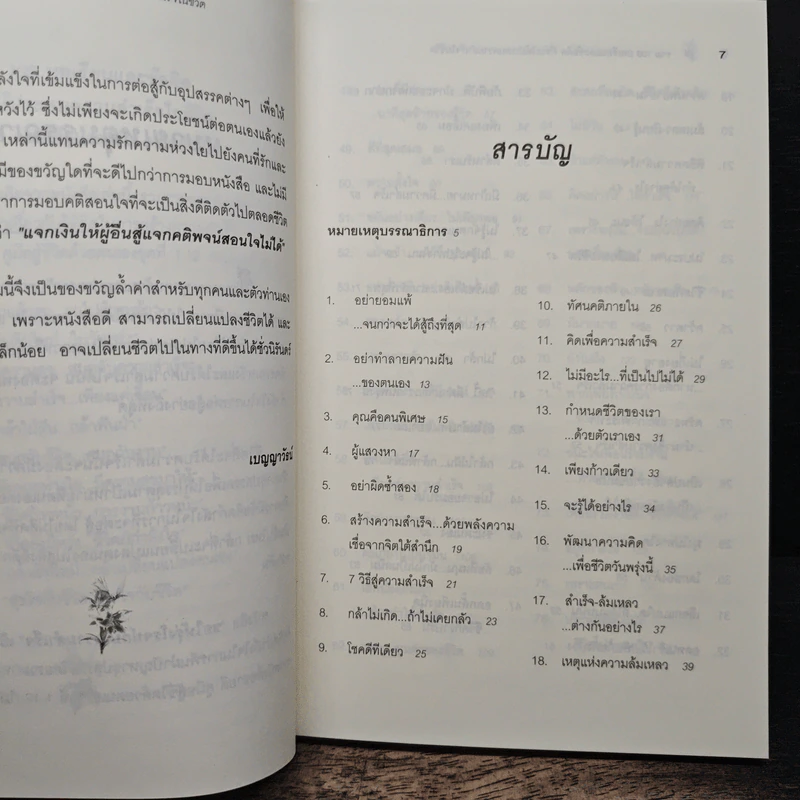 ลังใจที่เข้มแข็งในการต่อสู้กับอุปสรรคต่างๆ เพื่อให้
หวังไว้ ซึ่งไม่เพียงจะเกิดประโยชน์ต่อตนเองแล้วยัง
เหล่านี้แทนความรักความห่วงใยไปยังคนที่รักและ
มีของขวัญใดที่จะดีไปกว่าการมอบหนังสือ และไม่มี
าการมอบคติสอนใจที่จะเป็นสิ่งดีติดตัวไปตลอดชีวิต
่า "แจกเงินให้ผู้อื่นสู้แจกคติพจน์สอนใจไม่ได้"
มนี้จึงเป็นของขวัญล้ำค่าสำหรับทุกคนและตัวท่านเอง
เพราะหนังสือดี สามารถเปลี่ยนแปลงชีวิตได้ และ
ล็กน้อย อาจเปลี่ยนชีวิตไปในทางที่ดีขึ้นได้ชั่วนิรันดร์
เบญญาวัธน์
7
สารบัญ
หมายเหตุบรรณาธิการ 5
1. อย่ายอมแพ้
...จนกว่าจะได้สู้ถึงที่สุด 11
2. อย่าทำลายความฝัน
...ของตนเอง 13
3. คุณคือคนพิเศษ 15
4. ผู้แสวงหา 17
5. อย่าผิดซ้ำสอง 18
6. สร้างความสำเร็จ...ด้วยพลังความ
เชื่อจากจิตใต้สำนึก 19
7. 7 วิธีสู่ความสำเร็จ 21
8. กล้าไม่เกิด...ถ้าไม่เคยกลัว 23
9. โชคดีทีเดียว 25
10. ทัศนคติภายใน 26
11. คิดเพื่อความสำเร็จ 27
12. ไม่มีอะไร...ที่เป็นไปไม่ได้ 29
13. กำหนดชีวิตของเรา
...ด้วยตัวเราเอง 31
14. เพียงก้าวเดียว 33
15. จะรู้ได้อย่างไร 34
16. พัฒนาความคิด
...เพื่อชีวิตวันพรุ่งนี้ 35
17. สำเร็จ-ล้มเหลว
...ต่างกันอย่างไร 37
18. เหตุแห่งความล้มเหลว 39